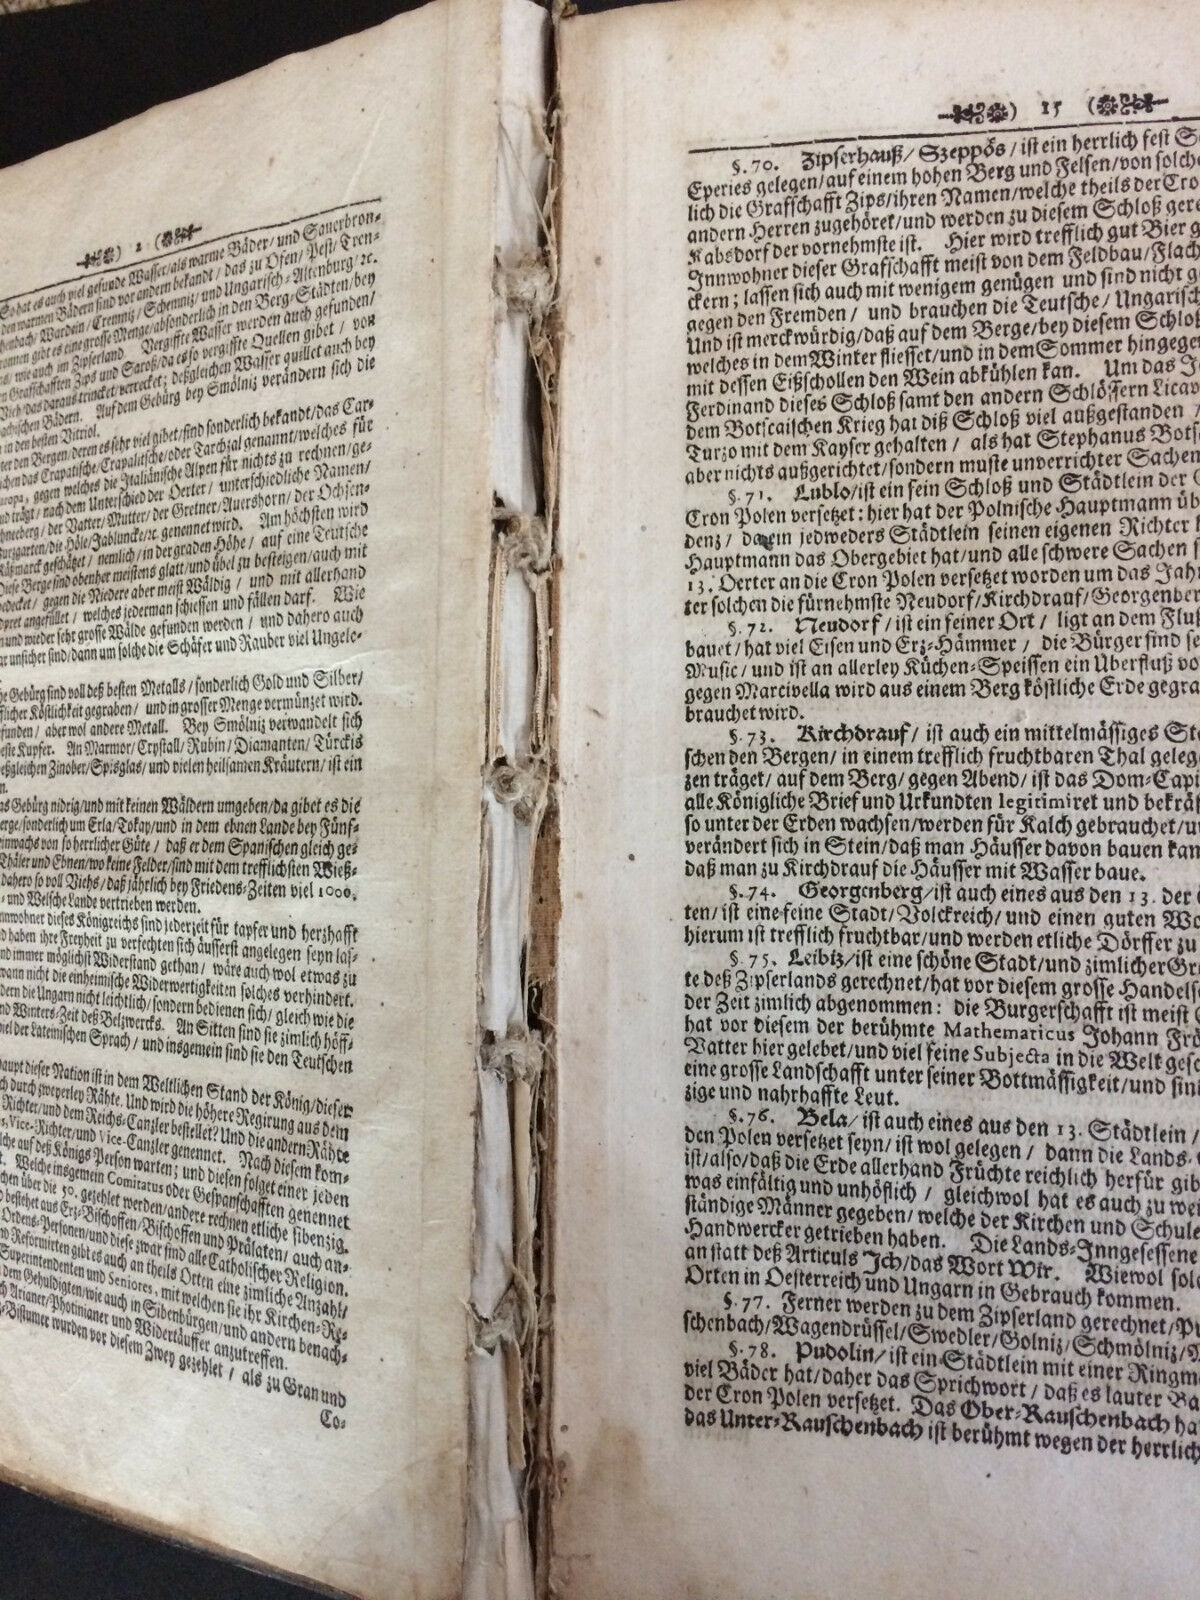 ) 2 (
So hat es auch viel gesunde Wasser/als warme Bäder/und Sauerbron-
den warmen Bädern sind vor andern bekandt/das zu Ofen/Pest/Tren-
chenbach/Wardein/Cremniz/Schemniz/und Ungarisch-Altenburg/ꝛc.
ronnen gibt es eine grosse Menge/absonderlich in den Berg-Städten/bey
wie auch im Zipserland. Vergiffte Wasser werden auch gefunden/
Grafschafften Zips und Saroß/da es so vergiffte Quellen gibet / von
Vieh/das daraus trincket/verrecket; deßgleichen Wasser quillet auch bey
Bädern. Auf dem Gebürg bey Smölniz verändern sich die
in den besten Vitriol.
ter den Bergen/deren es sehr viel gibet/sind sonderlich bekandt/das Car-
das Crapatische/Crapalitsche/oder Tarchzal genannt/welches für
uropa, gegen welches die Italiänische Alpen für nichts zu rechnen/ge-
nd trägt/nach dem Unterschied der Oerter/ unterschiedliche Namen/
hneeberg/der Vatter/Mutter/der Gretner/Auershorn/der Ochsen-
urzgarten/die Höle/Jabluncke/ꝛc genennet wird. Am höchsten wird
Käsmarck geschätzet/ nemlich/in der graden Höhe/ auf eine Teutsche
Diese Berge sind oben her meistens glatt/und übel zu besteigen/auch mit
bedecket/ gegen die Niedere aber meist Wäldig / und mit allerhand
dpret angefüllet/ welches jederman schiessen und fällen darf. Wie
n und wieder sehr grosse Wälde gefunden werden / und dahero auch
ar unsicher sind/dann um solche die Schäfer und Rauber viel Ungele-
he Gebürg sind voll deß besten Metalls/sonderlich Gold und Silber/
flicher Köstlichkeit gegraben/ und in grosser Menge vermünzet wird.
funden/aber wol andere Metall. Bey Smölniz verwandelt sich
este Kupfer. An Marmor/Crystall/Rubin/Diamanten/Türckis
eßgleichen Zinober/Spisglas/und vielen heilsamen Kräutern/ist ein
n.
as Gebürg nidrig/und mit keinen Wäldern umgeben/da gibet es die
erge/sonderlich um Erla/Tokay/und in dem ebnen Lande bey Fünf-
einwachs von so herrlicher Güte/ daß er dem Spanischen gleich ge-
Thäler und Ebnen/wo keine Felder/sind mit dem trefflichsten Wieß-
dahero so voll Viehs/daß jährlich bey Friedens-Zeiten viel 1000.
- und Welsche Lande vertrieben werden.
nnwohner dieses Königreichs sind jederzeit für tapfer und herzhafft
d haben ihre Freyheit zu verfechten sich äusserst angelegen seyn las-
nd immer möglichst Widerstand gethan/ wäre auch wol etwas zu
wann nicht die einheimische Widerwertigkeiten solches verhindert.
dern die Ungarn nicht leichtlich/sondern bedienen sich/gleich wie die
nd Winters-Zeit deß Belzwercks. An Sitten sind sie zimlich höff-
iel der Lateinischen Sprach/und insgemein sind sie den Teutschen
aupt dieser Nation ist in dem Weltlichen Stand der König/dieser
ch durch zweyerley Rähte. Und wird die höhere Regirung aus dem
Richter/und dem Reichs-Canzler bestellet? Und die andern Rähte
s, Vice-Richter/und Vice-Canzler genennet. Nach diesem kom-
lche auf deß Königs Person warten; und diesen folget einer jeden
t. Welche insgemein Comitatus oder Gespanschafften genennet
chen über die 50. gezehlet werden/andere rechnen etliche sibenzig.
d bestehet aus Erz-Bischoffen/Bischoffen und Prälaten/ auch an-
Ordens-Personen/und diese zwar sind alle Catholischer Religion.
nd Reformirten gibt es auch an theils Orten eine zimliche Anzahl/
Superintendenten und Seniores, mit welchen sie ihr Kirchen-Re-
dem Gehuldigten/wie auch in Sibenbürgen/und andern benach-
ch Arianer/Photinianer und Widertäuffer anzutreffen.
-Bistumer wurden vor diesem Zwey gezehlet/ als zu Gran und
Co-
) 15 (
§. 70. Zipserhauß/ Szeppös/ist ein herrlich fest
Eperies gelegen/auf einem hohen Berg und Felsen/von solche
lich die Grafschafft Zips/ihren Namen/welche theils der Cro
andern Herren zugehöret/und werden zu diesem Schloß gere
Kabsdorf der vornehmste ist. Hier wird trefflich gut Bier g
Innwohner dieser Grafschafft meist von dem Feldbau/Flach
ckern; lassen sich auch mit wenigem genügen und sind nicht g
gegen den Fremden/ und brauchen die Teutsche/ Ungarisch
Und ist merckwürdig/daß auf dem Berge/bey diesem Schloß
welches in dem Winter fliesset/und in dem Sommer hingege
mit dessen Eißschollen den Wein abkühlen kan. Um das J
Ferdinand dieses Schloß samt den andern Schlössern Licav
dem Botscaischen Krieg hat diß Schloß viel außgestanden /
Turzo mit dem Kayser gehalten / als hat Stephanus Bots
aber nichts außgerichtet/sondern muste unverrichter Sachen
§. 71. Lublo/ist ein fein Schloß und Städtlein der
Cron Polen versetzet: hier hat der Polnische Hauptmann üb
denz/ darein jedweders Städtlein seinen eigenen Richter
Hauptmann das Obergebiet hat/und alle schwere Sachen
13. Oerter an die Cron Polen versetzet worden um das Jah
ter solchen die fürnehmste Neudorf/Kirchdrauf/Georgenber
§. 72. Neudorf/ist ein feiner Ort/ ligt an dem Fluß
bauet/hat viel Eisen und Erz-Hämmer/ die Bürger sind se
Music/ und ist an allerley Küchen-Speissen ein Uberfluß vo
gegen Marcivella wird aus einem Berg köstliche Erde gegra
brauchet wird.
§. 73. Kirchdrauf/ ist auch ein mittelmässiges Stä
schen den Bergen/ in einem trefflich fruchtbaren Thal geleg
zen träget/ auf dem Berg/gegen Abend/ist das Dom-Capi
alle Königliche Brief und Urkundten legitimiret und bekräf
so unter der Erden wachsen/werden für Kalch gebrauchet/u
verändert sich in Stein/daß man Häusser davon bauen kan
daß man zu Kirchdrauf die Häusser mit Wasser baue.
§. 74. Georgenberg/ist auch eines aus den 13. der
ten/ist eine feine Stadt/Volckreich/und einen guten We
hierum ist trefflich fruchtbar/und werden etliche Dörffer zu
§. 75. Leibiz/ist eine schöne Stadt/und zimlicher Gr
te deß Zipserlands gerechnet/hat vor diesem grosse Handels
der Zeit zimlich abgenommen: die Burgerschafft ist meist
hat vor diesem der berühmte Mathematicus Johann Frö
Vatter hier gelebet/und viel feine Subjecta in die Welt gesc
eine grosse Landschafft unter seiner Bottmässigkeit/und sin
zige und nahrhaffte Leut.
§. 76. Bela/ist auch eines aus den 13. Städtlein /
den Polen versetzet seyn/ist wol gelegen/ dann die Lands-
ist/also/daß die Erde allerhand Früchte reichlich herfür gib
was einfältig und unhöflich/ gleichwol hat es auch zu wei
ständige Männer gegeben/welche der Kirchen und Schule
Handwercker getrieben haben. Die Lands-Inngesessene
an statt deß Articuls Ich/das Wort Wir. Wiewol sol
Orten in Oesterreich und Ungarn in Gebrauch kommen.
§. 77. Ferner werden zu dem Zipserland gerechnet/Pu
schenbach/Wagendrüssel/Swedler/Golniz/Schmölniz/
§. 78. Pudolin/ist ein Städtlein mit einer Ringm
viel Bäder hat/daher das Sprichwort/ daß es lauter Ba
der Cron Polen versetzet. Das Ober-Rauschenbach ha
das Unter-Rauschenbach ist berühmt wegen der herrlich